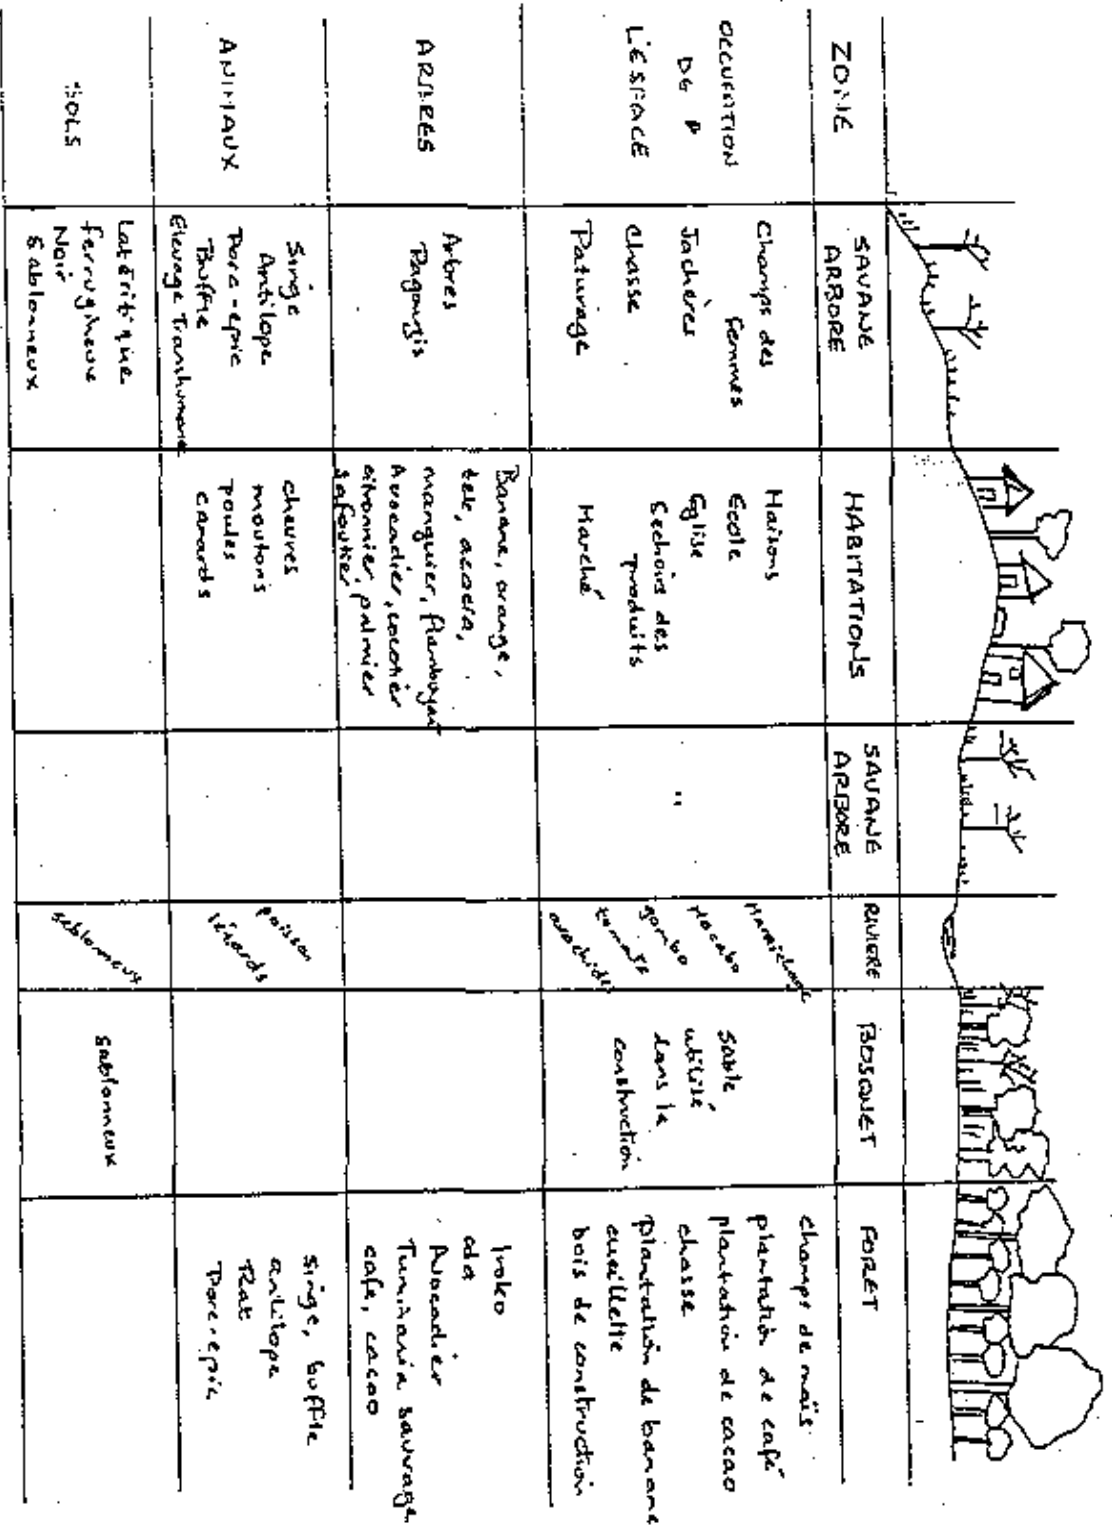 ZONE
SAVANE
ARBORE
HABITATIONS
SAVANE
ARBORE
RIVIERE
BOSQUET
FORET
OCCUPATION
DE
L'ESPACE
Champs des
femmes
Jachères
Chasse
Paturage
Maisons
Ecole
Eglise
Sechoirs des
produits
Marché
"
Maraichage
Macabo
gombo
tomate
arachide
Sable
utilisé
dans la
construction
champs de maïs
plantation de café
plantation de cacao
chasse
plantation de banane
cueillette
bois de construction
ARBRES
Arbres
Banane, orange,
tek, acacia,
manguier, flamboyant
Avocadier, cocotier
citronnier, palmier
Safoutier
Iroko
Avocadier
sauvage
café, cacao
ANIMAUX
Singe
Antilope
Porc-epic
Buffle
Elevage Transhumance
chevres
moutons
poules
canards
poisson
lézards
singe, buffle
antilope
Rat
Porc-epic
SOLS
Latéritique
ferrugineux
Noir
Sablonneux
sablonneux
sablonneux